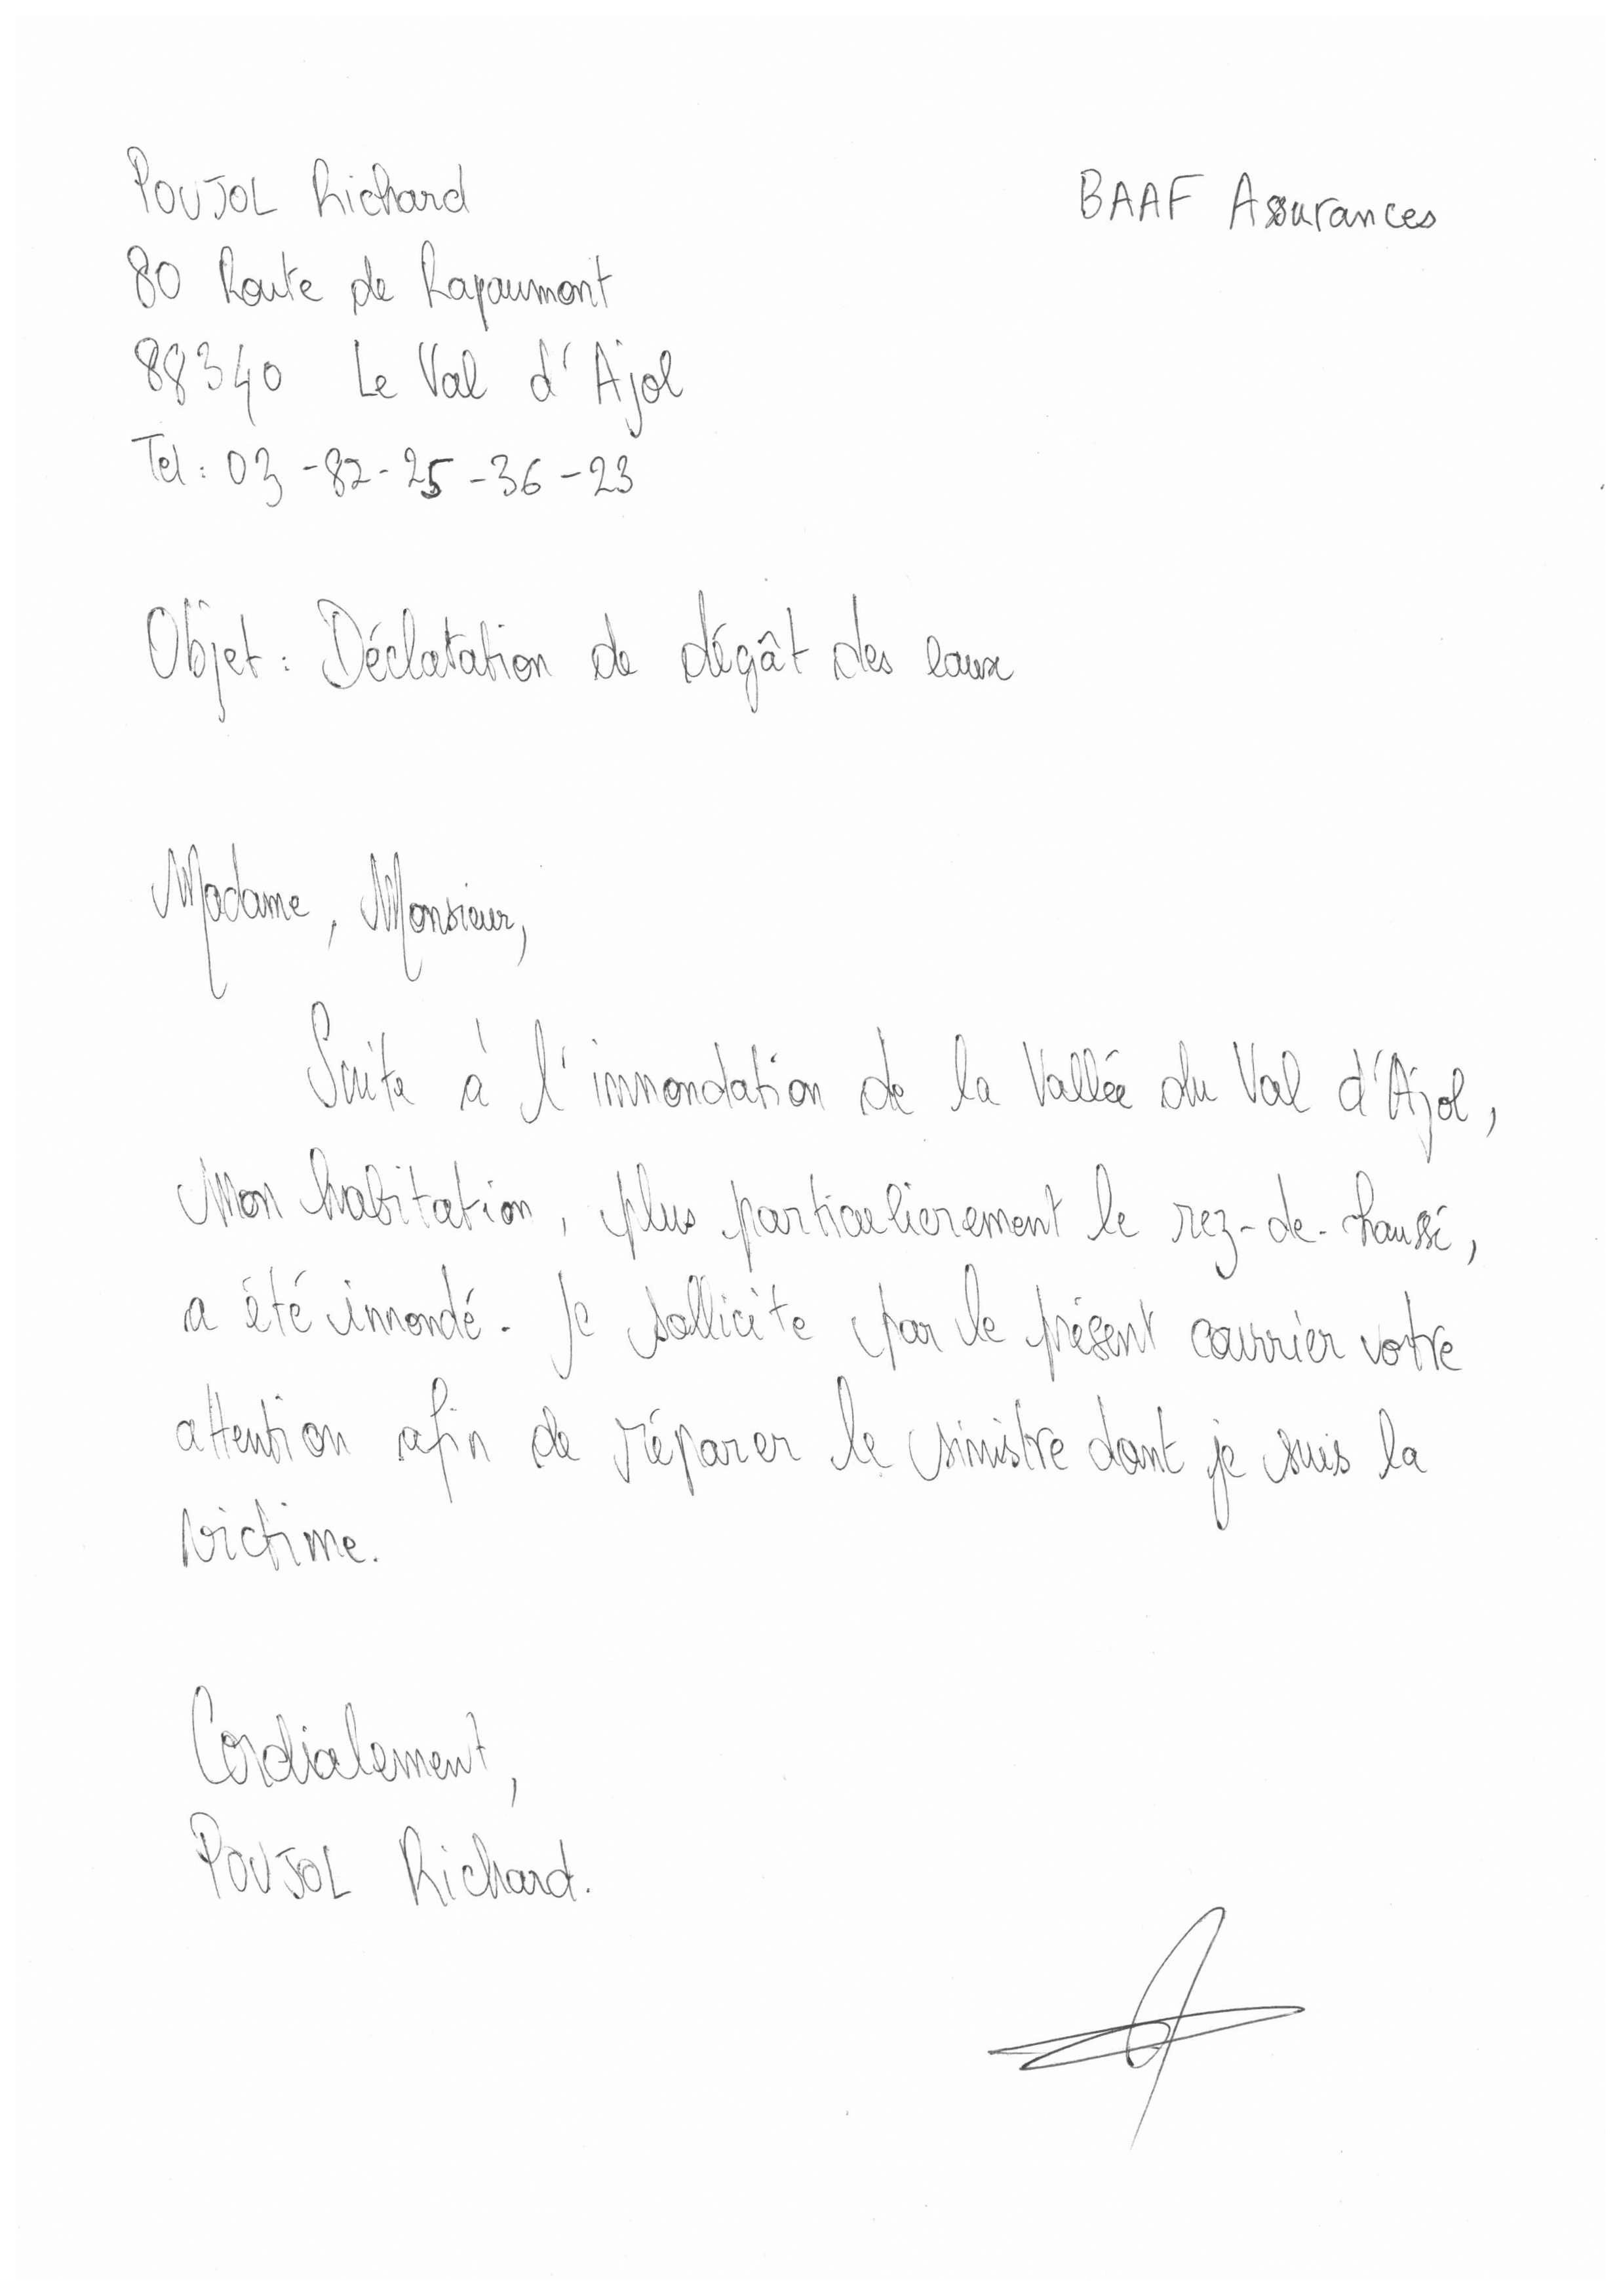 POUJOL Richard
BAAF Assurances
80 Route de Rapaumont
88340 Le Val d'Ajol
Tel : 03-82-25-36-23
Objet : Déclatation de dégât des eaux
Madame, Monsieur,
Suite à l'innondation de la Vallée du Val d'Ajol,
Mon habitation, plus particulierement le rez-de-haussé,
a été innondé. Je sollicite par le présent courrier votre
attention afin de réparer le sinistre dont je suis la
victime.
Cordialement,
POUJOL Richard.